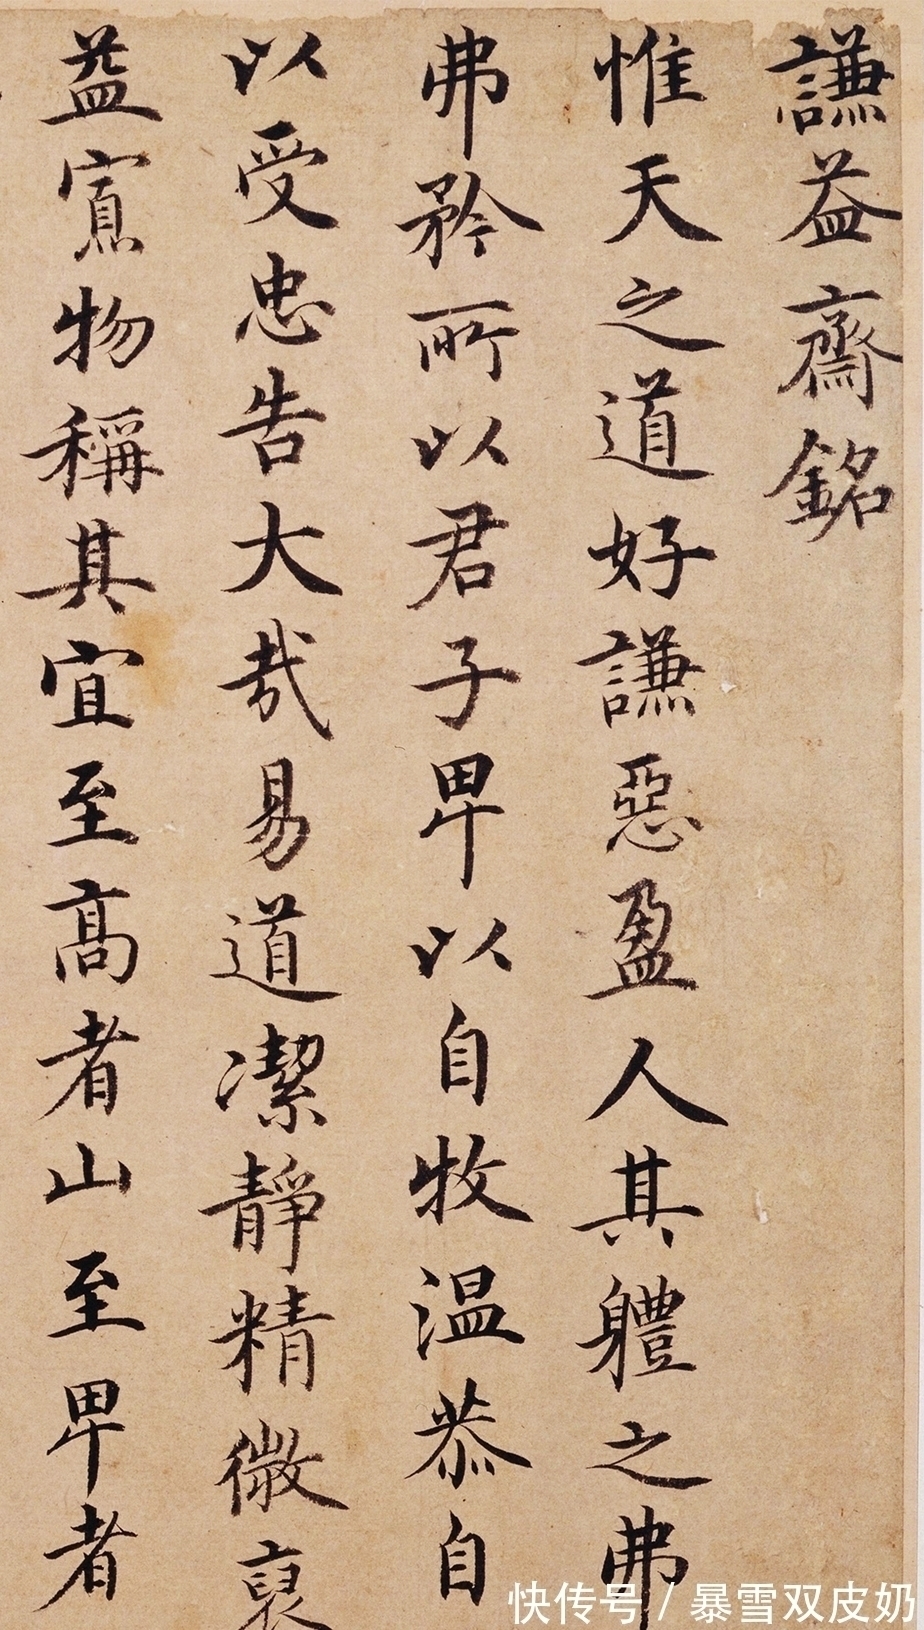 謙益齋銘
惟天之道好謙惡盈人其軆之弗
弗矜所以君子卑以自牧温恭自
以受忠告大哉易道潔靜精微裒
益寡物稱其宜至高者山至卑者
快传号 / 暴雪双皮奶